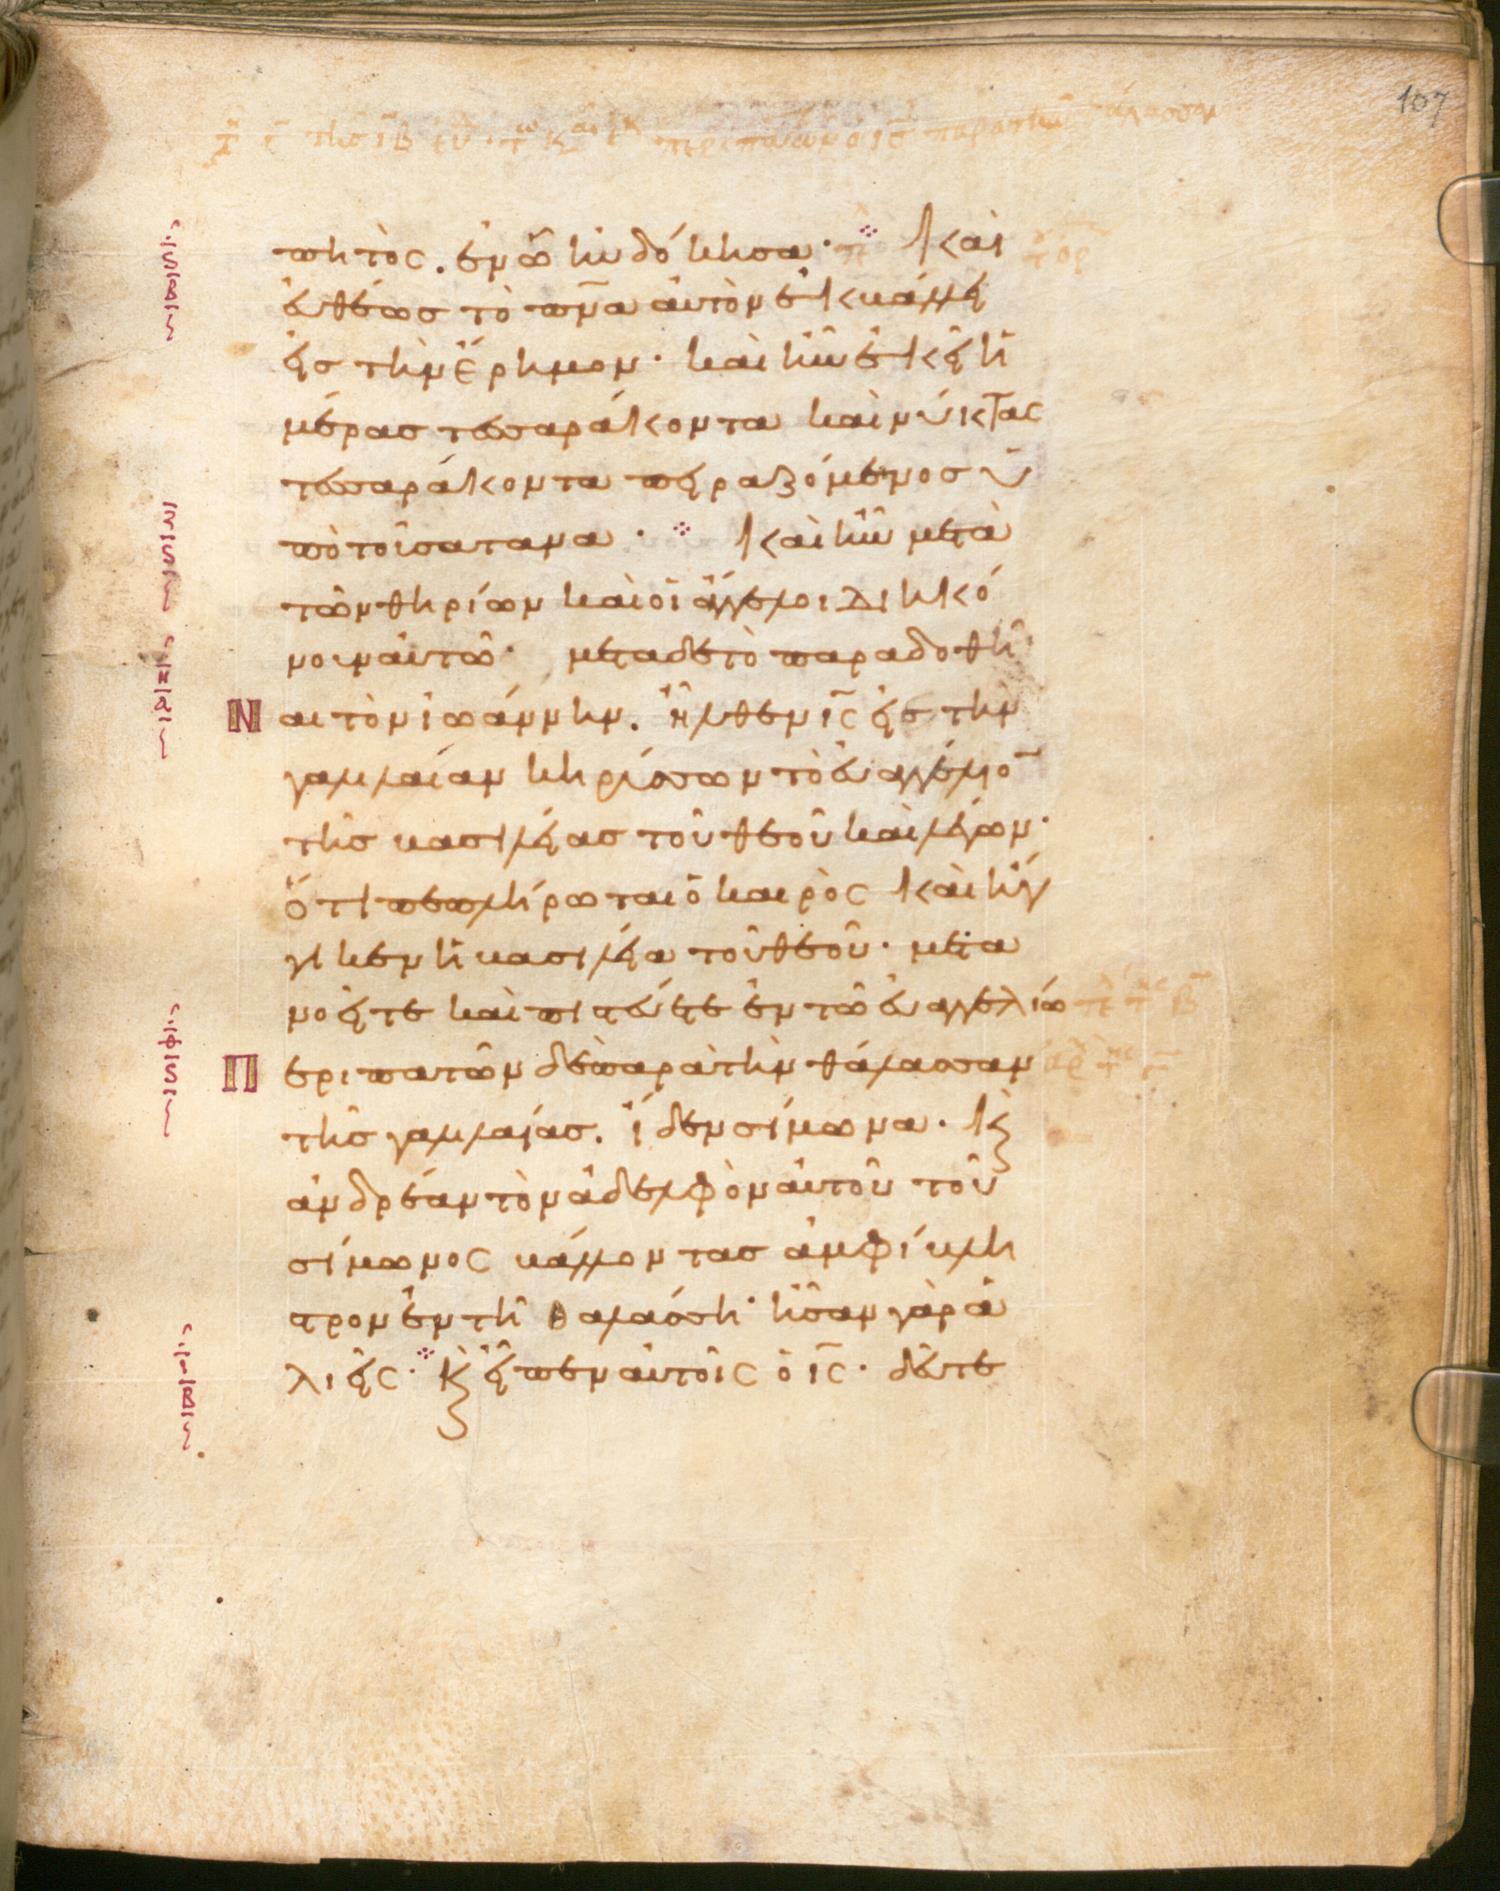 107
πητὸς. ἐν ᾧ ηὐδόκησα· Καὶ
ἐυθέως τὸ πν̅α ἀυτὸν ἐκβάλλει
εἰς τὴν ἔρημον· καὶ ἦν ἐκεῖ ἡ
μέρας τεσσαράκοντα καὶ νύκτας
τεσσαράκοντα πειραζόμενος ὑ
πὸ τοῦ σατανα· Καὶ ἦν μετὰ
τῶν θηρίων καὶ οἱ ἄγγελοι διηκό
νουν ἀυτῶ· μετα δὲ τὸ παραδοθῆ
Ναι τὸν ἰωάννην. ἦλθεν ις̅ εἰς τὴν
γαλιλαίαν κηρύσσων τὸ ἐυαγγέλιο̅
τῆς βασιλείας τοῦ θεοῦ καὶ λέγων·
ὅτι πεπλήρωται ὁ καιρὸς καὶ ἤγ
γικεν ἡ βασιλεία τοῦ θεοῦ· μετα
νοεῖτε καὶ πιστέυετε ἐν τῶ ἐυαγγελίω
Περιπατῶν δὲ παρὰ τὴν θάλασσαν
τῆς γαλιλαίας. ἴδεν σίμωνα· Κὶ
ἀνδρέαν τὸν ἀδελφὸν ἀυτοῦ τοῦ
σίμωνος βάλλοντας ἀμφίβλη
στρον ἐν τῆ θαλάσση· ἦσαν γὰρ ἁ
λιεῖς· Κὶ εἶπεν ἀυτοῖς ὁ ις̅· δεῦτε